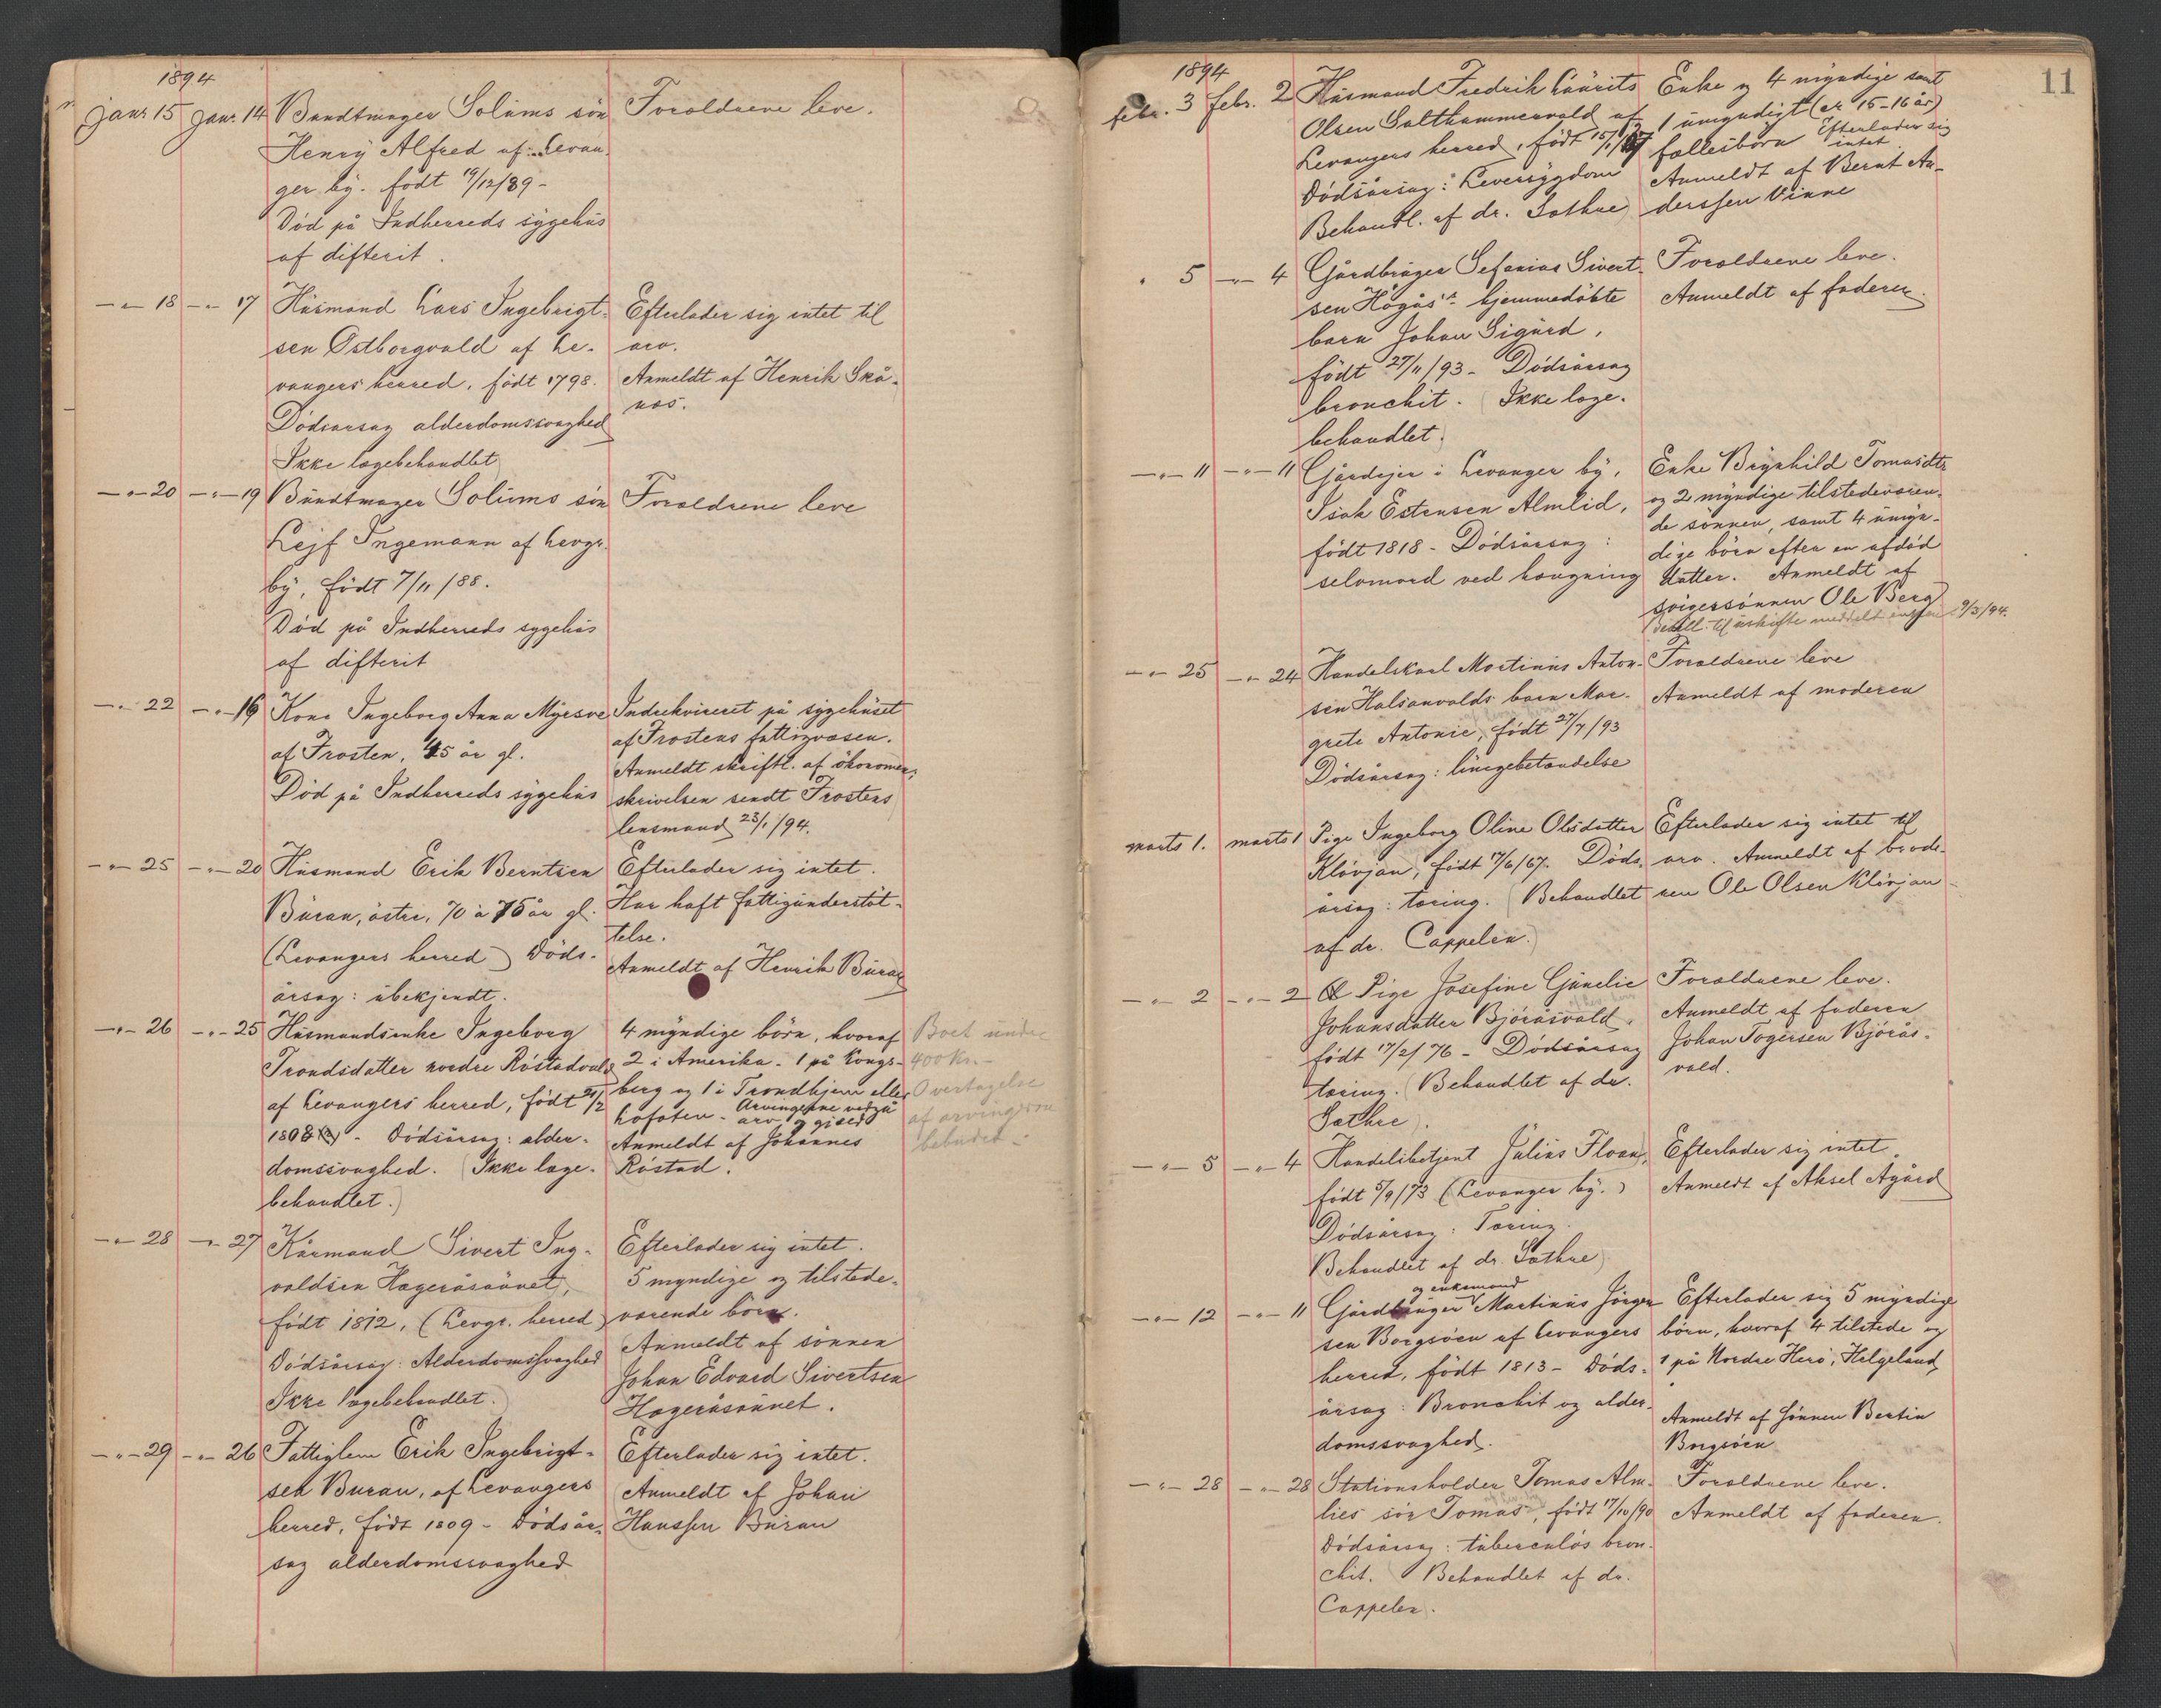 1894
Janr 15 Janr. 14 Bundtmager Solums søn Forældrene leve.
Henry Alfred af Levan-
ger by. født 19/12/89 -
Død på Indherreds sygehus
af difterit.
-"- 18 -"- 17 Husmand Lars Ingebrigt- Efterlader sig intet til
sen Østborgvald af Le- arv.
vangers herred, født 1798. Anmeldt af Henrik Skå-
Dødsårsag alderdomssvaghed nes.
Ikke lægebehandlet
-"- 20 -"- 19 Bundtmager Solums søn Forældrene leve
Lejf Ingemann af Levgr.
by, født 7/11/88.
Død på Indherreds sygehus
af difterit
-"- 22 -"- 16 Kone Ingeborg Anna Myrsve Indrekvireret på sygehuset
af Frosten, 45 år gl. af Frostens fattigvæsen.
Anmeldt skriftl. af økonomen,
Død på Indherreds sygehus skrivelsen sendt Frostens
lensmand 23/1/94.
-"- 25 -"- 20 Husmand Erik Berntsen Efterlader sig intet.
Buran, østre, 70 à 75 år gl. Har haft fattigunderstøt-
(Levangers herred) Døds- telse.
årsag: ubekjendt. Anmeldt af Henrik Buran
-"- 26 -"- 25 Husmandsenke Ingeborg 4 myndige børn, hvoraf Boet under
Trondsdatter nordre Røstadvald 2 i Amerika - 1 på Kongs- 400 kr. -
af Levangers herred, født 24/2 berg og 1 i Trondhjem eller Overtagelse
Lofoten - Arvingerne vedgå arv og gjæld af arvingerne
1808 - Dødsårsag: alder- Anmeldt af Johannes bebudet -
domssvaghed. (Ikke læge- Røstad.
behandlet.)
-"- 28 -"- 27 Kårmand Sivert Ing- Efterlader sig intet.
valdsen Hageråsaunet, 5 myndige og tilstede-
født 1812, (Levgr. herred) værende børn.
Dødsårsag: Alderdomssvaghed Anmeldt af sønnen
Johan Edvard Sivertsen
Ikke lægebehandlet. Hageråsaunet.
-"- 29 -"- 26 Fattiglem Erik Ingebrigt- Efterlader sig intet.
sen Buran, af Levangers Anmeldt af Johan
herred, født 1809 - Dødsår- Hanssen Buran
sag alderdomssvaghed
11
1894
febr. 3 febr. 2 Husmand Fredrik Laurits Enke og 4 myndige samt
Olsen Salthammervald af 1 umyndigt (er 15-16 år)
Levangers herred, født 15/1/ fællesbørn Efterlader sig intet
Dødsårsag: Leversygdom Anmeldt af Bernt An-
Behandl. af dr. Sothue) derssen Vinne
" 5 -"- 4 Gårdbruger Sefanias Sivert- Forældrene leve.
sen Høgås's hjemmedøbte Anmeldt af faderen.
barn Johan Sigurd,
født 27/11/93 - Dødsårsag
bronchit. (Ikke læge-
behandlet.
-"- 11 -"- 11 Gårdejer i Levanger by, Enke Brynhild Tomasdtr
Isak Estensen Almlid, og 2 myndige tilstedeværen-
de sønner, samt 4 umyn-
født 1818 - Dødsårsag: dige børn efter en afdød
selvmord ved hængning datter. Anmeldt af
svigersønnen Ole Berg
Bevill. til uskifte meddelt enken 9/3/94.
-"- 25 -"- 24 Handelskarl Martinus Anton- Forældrene leve
sen Halsanvalds barn Mar- Anmeldt af moderen
grete Antonie, født 27/7/93
Dødsårsag: lungebetændelse
marts 1. marts 1 Pige Ingeborg Oline Olsdatter Efterlader sig intet til
Kløvjan, født 17/6/67. Døds- arv. Anmeldt af brode-
årsag: tæring. (Behandlet ren Ole Olsen Kløvjan -
af dr. Cappelen.)
-"- 2 -"- 2 Pige Josefine Gunelie Forældrene leve.
Johansdatter Bjøråsvald, Anmeldt af faderen
født 17/2/76 - Dødsårsag Johan Togersen Bjørås-
tæring. (Behandlet af dr. vald.
Sothue).
-"- 5 -"- 4 Handelsbetjent Julius Floan, Efterlader sig intet
født 5/9/73 (Levanger by.) Anmeldt af Aksel Ågård
Dødsårsag: Tæring.
Behandlet af dr. Sothue)
og enkemand
-"- 12 -"- 11 Gårdbruger Martinus Jørgen- Efterlader sig 5 myndige
sen Borgsøen af Levangers børn, hvoraf 4 tilstede og
herred, født 1813 - Døds- 1 på Nordre Herø, Helgeland
årsag: Bronchit og alder- Anmeldt af sønnen Bertin
domssvaghed. Borgsøen
-"- 28 -"- 28 Stationsholder Tomas Alm- Forældrene leve.
lies søn Tomas, født 17/10/90 Anmeldt af faderen.
Dødsårsag: tuberculøs bron-
chit. Behandlet af dr.
Cappelen.